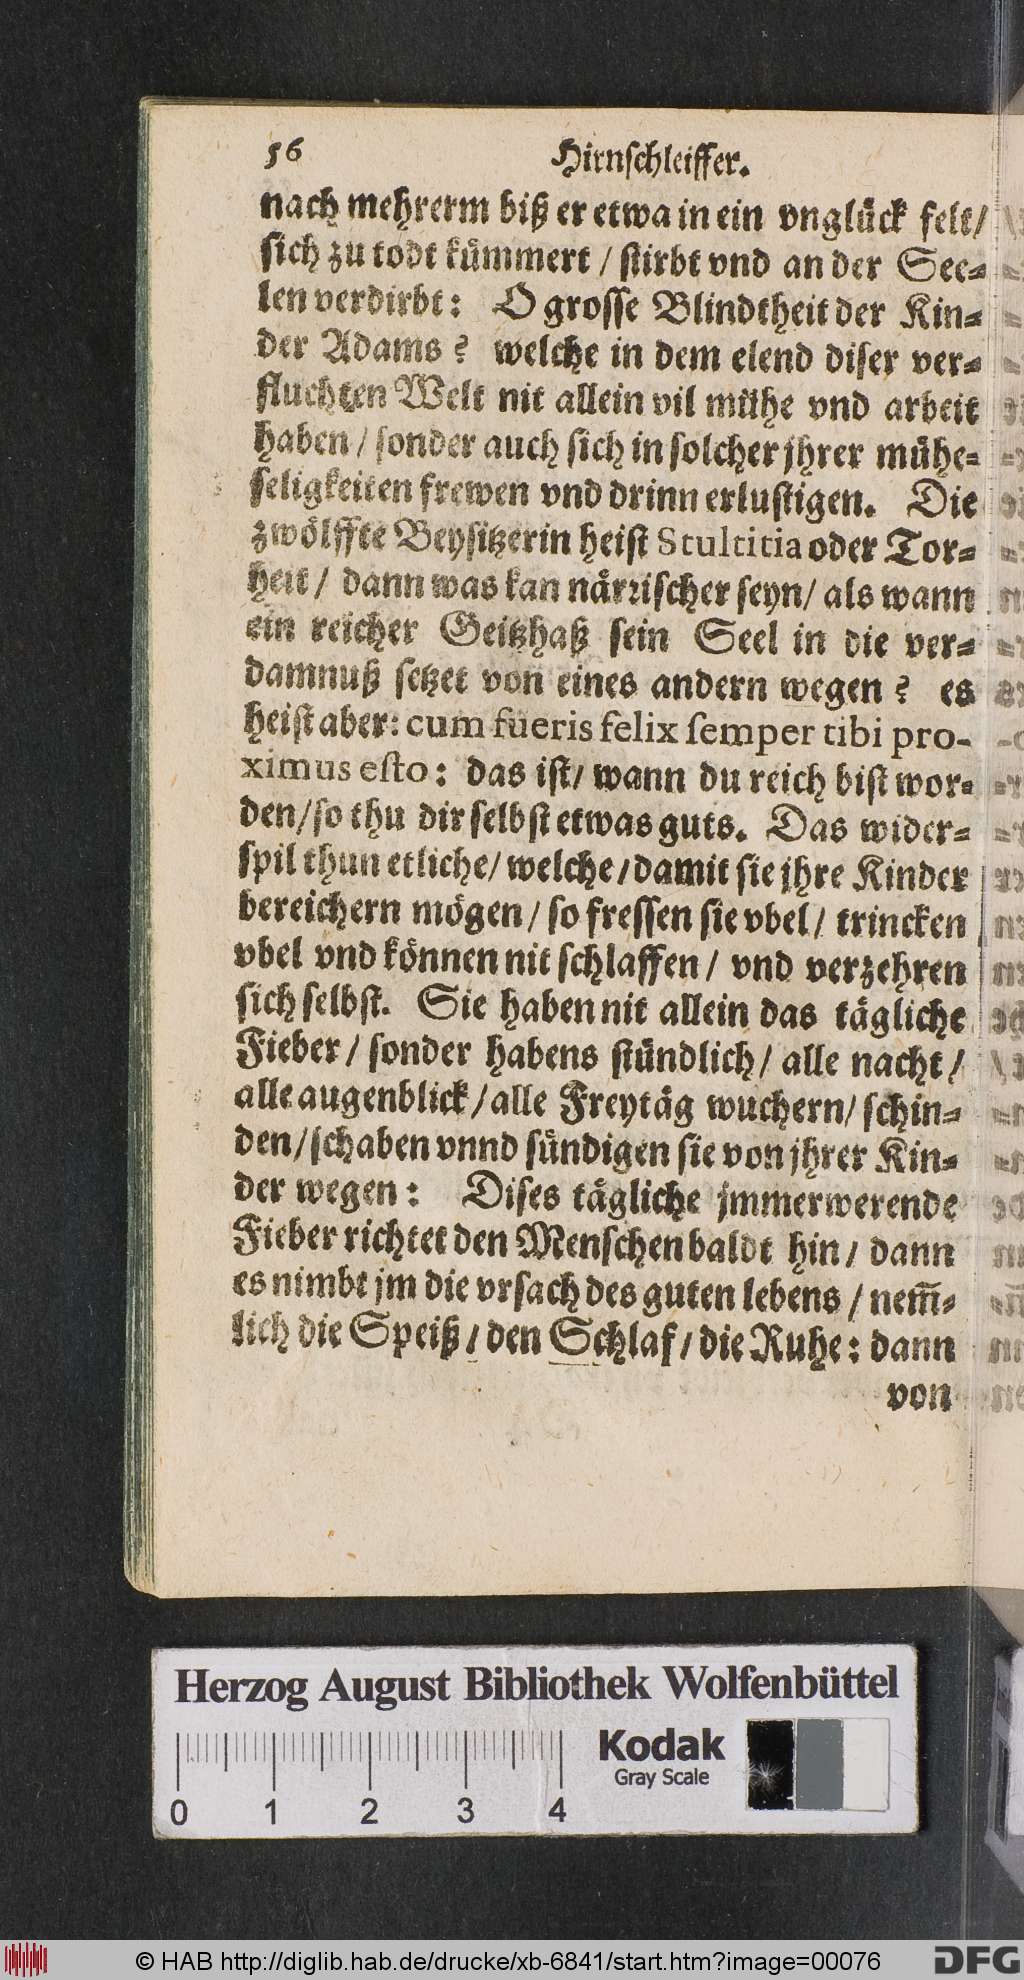 56 Hirnschleiffer.
nach mehrerm biß er etwa in ein vnglück felt/
sich zu todt kümmert / stirbt vnd an der See-
len verdirbt: O grosse Blindtheit der Kin-
der Adams? welche in dem elend diser ver-
fluchten Welt nit allein vil mühe vnd arbeit
haben / sonder auch sich in solcher jhrer mühe-
seligkeiten frewen vnd drinn erlustigen. Die
zwölffte Beysitzerin heist Stultitia oder Tor-
heit / dann was kan närrischer seyn/ als wann
ein reicher Geitzhaß sein Seel in die ver-
damnuß setzet von eines andern wegen? es
heist aber: cum fueris felix semper tibi pro-
ximus esto: das ist/ wann du reich bist wor-
den/so thu dir selbst etwas guts. Das wider-
spil thun etliche/ welche/damit sie jhre Kinder
bereichern mögen/ so fressen sie vbel/ trincken
vbel vnd können nit schlaffen/ vnd verzehren
sich selbst. Sie haben nit allein das tägliche
Fieber/ sonder habens stündlich/ alle nacht/
alle augenblick/alle Freytäg wuchern/ schin-
den/schaben vnnd sündigen sie von jhrer Kin-
der wegen: Dises tägliche jmmerwerende
Fieber richtet den Menschen baldt hin/ dann
es nimbt jm die vrsach des guten lebens / nem̃-
lich die Speiß/den Schlaf/die Ruhe: dann
von
Herzog August Bibliothek Wolfenbüttel
Kodak
Gray Scale
0 1 2 3 4
© HAB http://diglib.hab.de/drucke/xb-6841/start.htm?image=00076
DFG